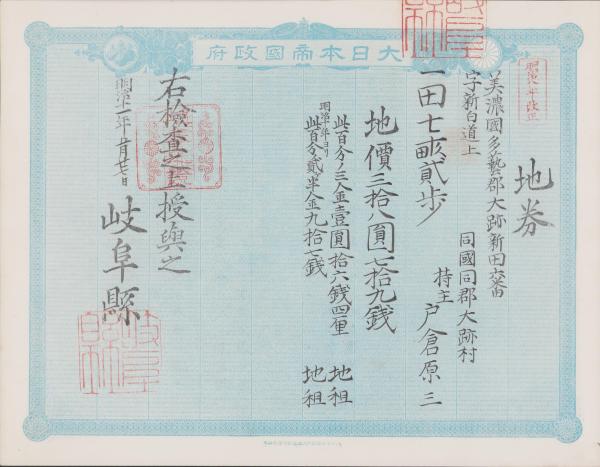 大日本帝國政府
明治八年改正
地券
美濃國多藝郡大跡新田六番
字新白道上
同國同郡大跡村
一田七畝貳歩
持主 戸倉原三
地價三拾八圓七拾九錢
此百分ノ三金壹圓拾六錢四厘 地租
明治十年ヨリ
此百分ノ貳半金九拾七錢 地租
右檢査之上授與之
明治十一年
岐阜縣